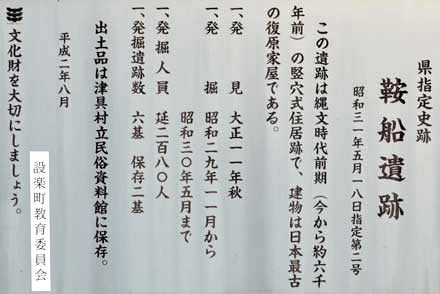 県指定史跡
鞍船遺跡
昭和三一年五月一八日指定第二号
この遺跡は縄文時代前期（今から約六千
年前）の竪穴式住居跡で、建物は日本最古
の復原家屋である。
一、発見 大正一一年秋
一、発掘 昭和二九年一一月から
昭和三〇年五月まで
一、発掘人員 延二百八〇人
一、発掘遺跡数 六基 保存二基
出土品は津具村立民俗資料館に保存。
平成二年八月
文化財を大切にしましょう。
設楽町教育委員会